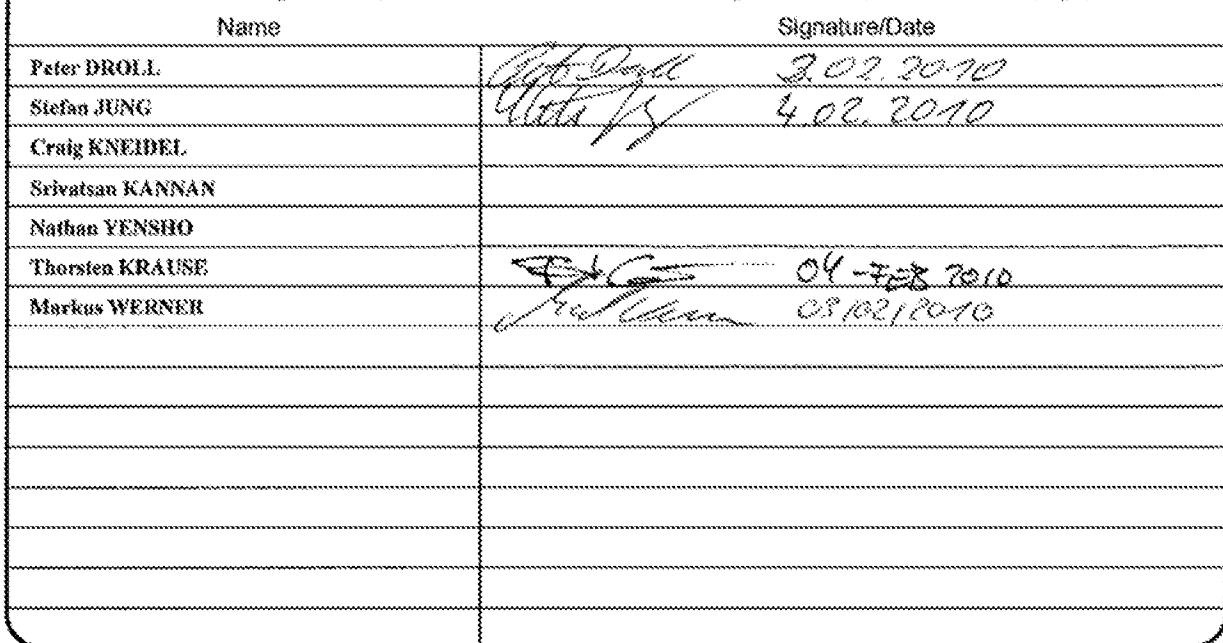 Name Signature/Date
Peter DROLL 3.02.2010
Stefan JUNG 4.02.2010
Craig KNEIDEL
Srivatsan KANNAN
Nathan YENSHO
Thorsten KRAUSE 04-FEB 2010
Markus WERNER 03/02/2010